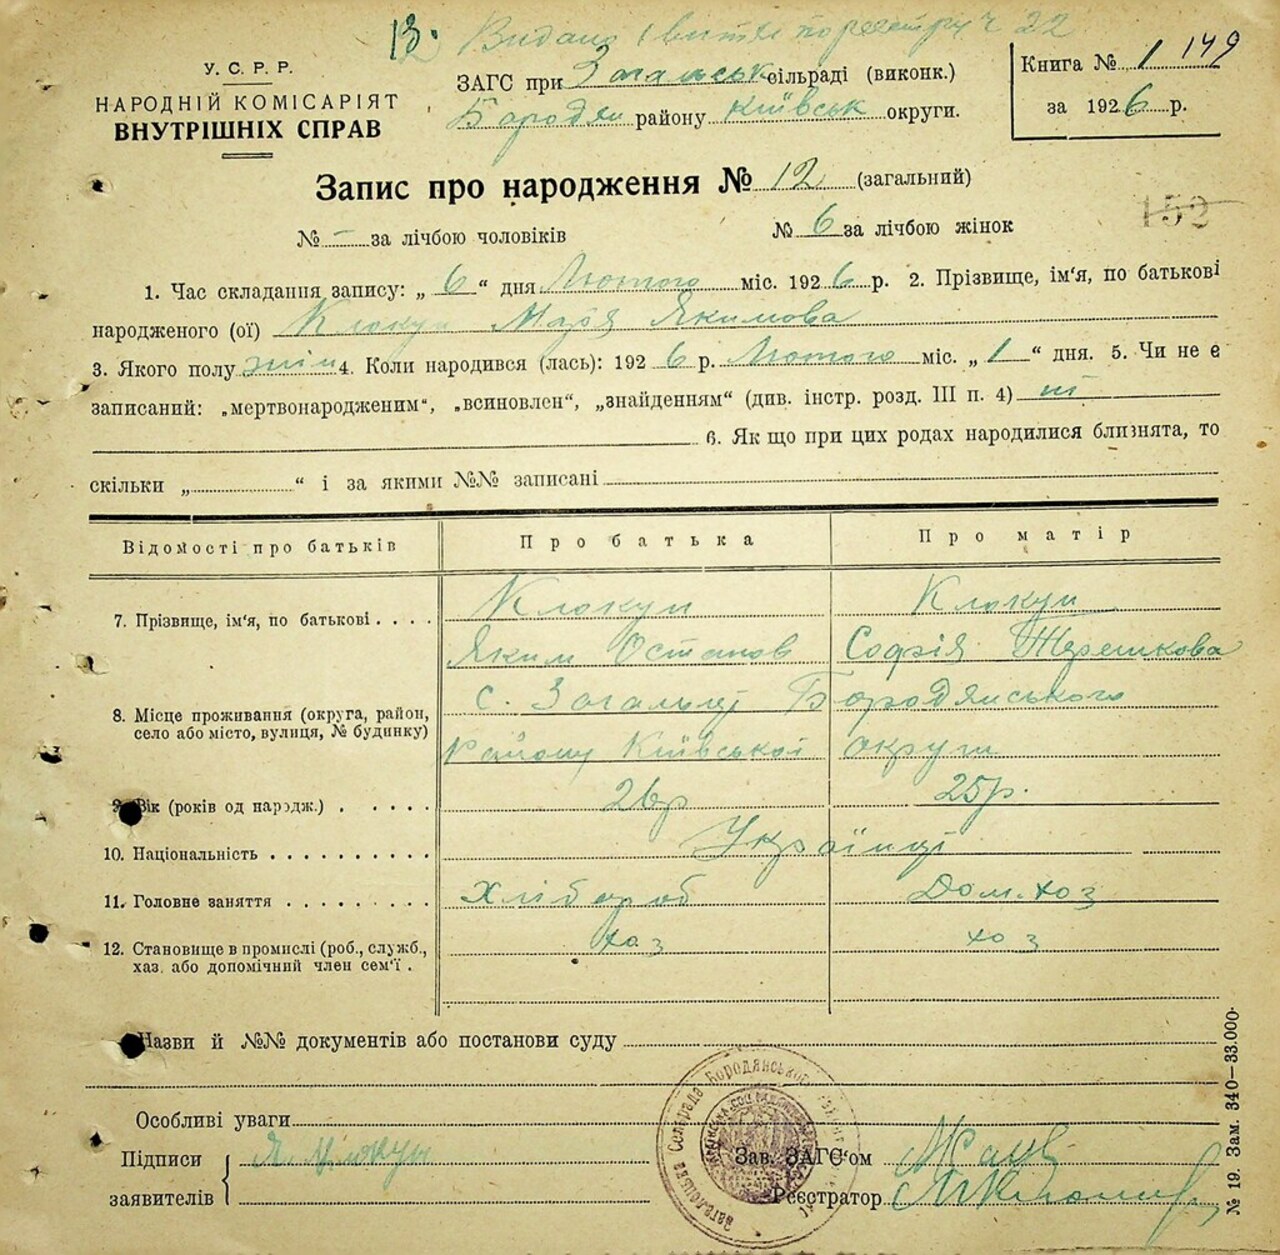 13. Видано по реєстру ч 22
У. С. Р. Р.
НАРОДНІЙ КОМІСАРІЯТ
ВНУТРІШНІХ СПРАВ
ЗАГС при Загальськ сільраді (виконк.)
Бородян району Київськ округи.
Книга № 1 149
за 1926 р.
Запис про народження № 12 (загальний)
152
№ – за лічбою чоловіків № 6 за лічбою жінок
1. Час складання запису: „ 6 “ дня Лютого міс. 1926 р. 2. Прізвище, ім'я, по батькові
народженого (ої) Клокун Марія Якимова
3. Якого полу жін 4. Коли народився (лась): 1926 р. Лютого міс. „ 1 “ дня. 5. Чи не є
записаний: „мертвонародженим“, „всиновлен“, „знайденням“ (див. інстр. розд. III п. 4) ні
6. Як що при цих родах народилися близнята, то
скільки „ “ і за якими №№ записані
Відомості про батьків Про батька Про матір
7. Прізвище, ім'я, по батькові . . . . Клокун Клокун
Яким Остапов Софія Терешкова
8. Місце проживання (округа, район, село або місто, вулиця, № будинку) с. Загальці Бородянського
Району Київської округи
9. Вік (років од народж.) . . . . . 26 р 25 р.
10. Національність . . . . . . . . . . Українці
11. Головне заняття . . . . . . . . . Хлібороб Дом. хоз
12. Становище в промислі (роб., служб., хаз. або допомічний член сем'ї . хаз хоз
Назви й №№ документів або постанови суду
Особливі уваги
Підписи Я. Клокун
заявителів
Зав. ЗАГС'ом
Реєстратор
№ 19. Зам. 340—33.000.